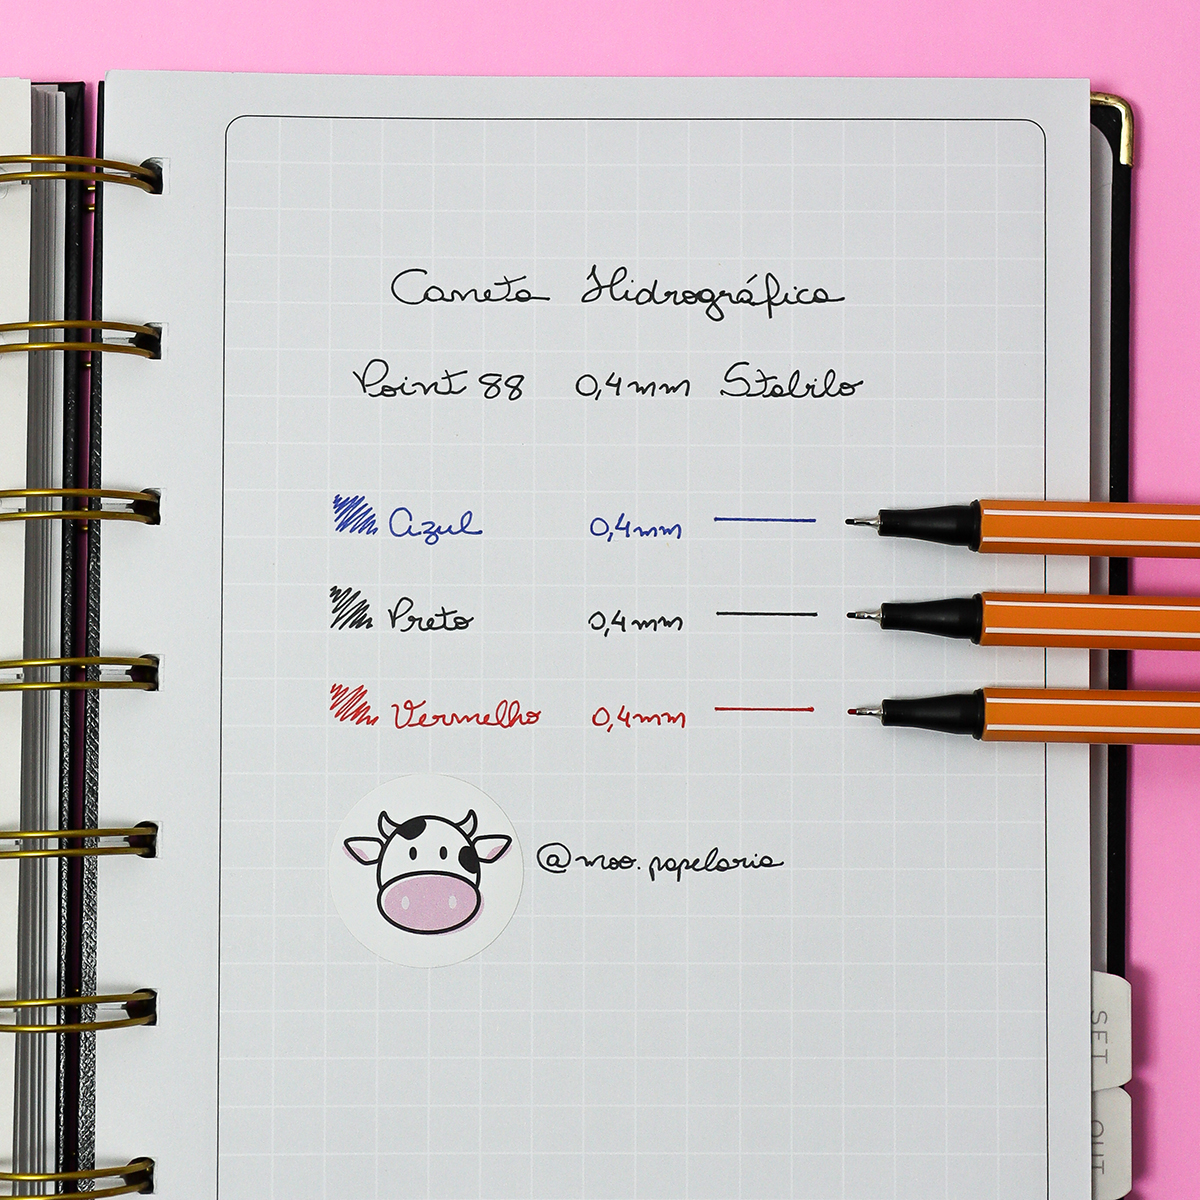 Caneta Hidrográfica
Point 88 0,4mm Stabilo
Azul 0,4mm
Preto 0,4mm
Vermelho 0,4mm
@moo.papelaria
SET
OUT